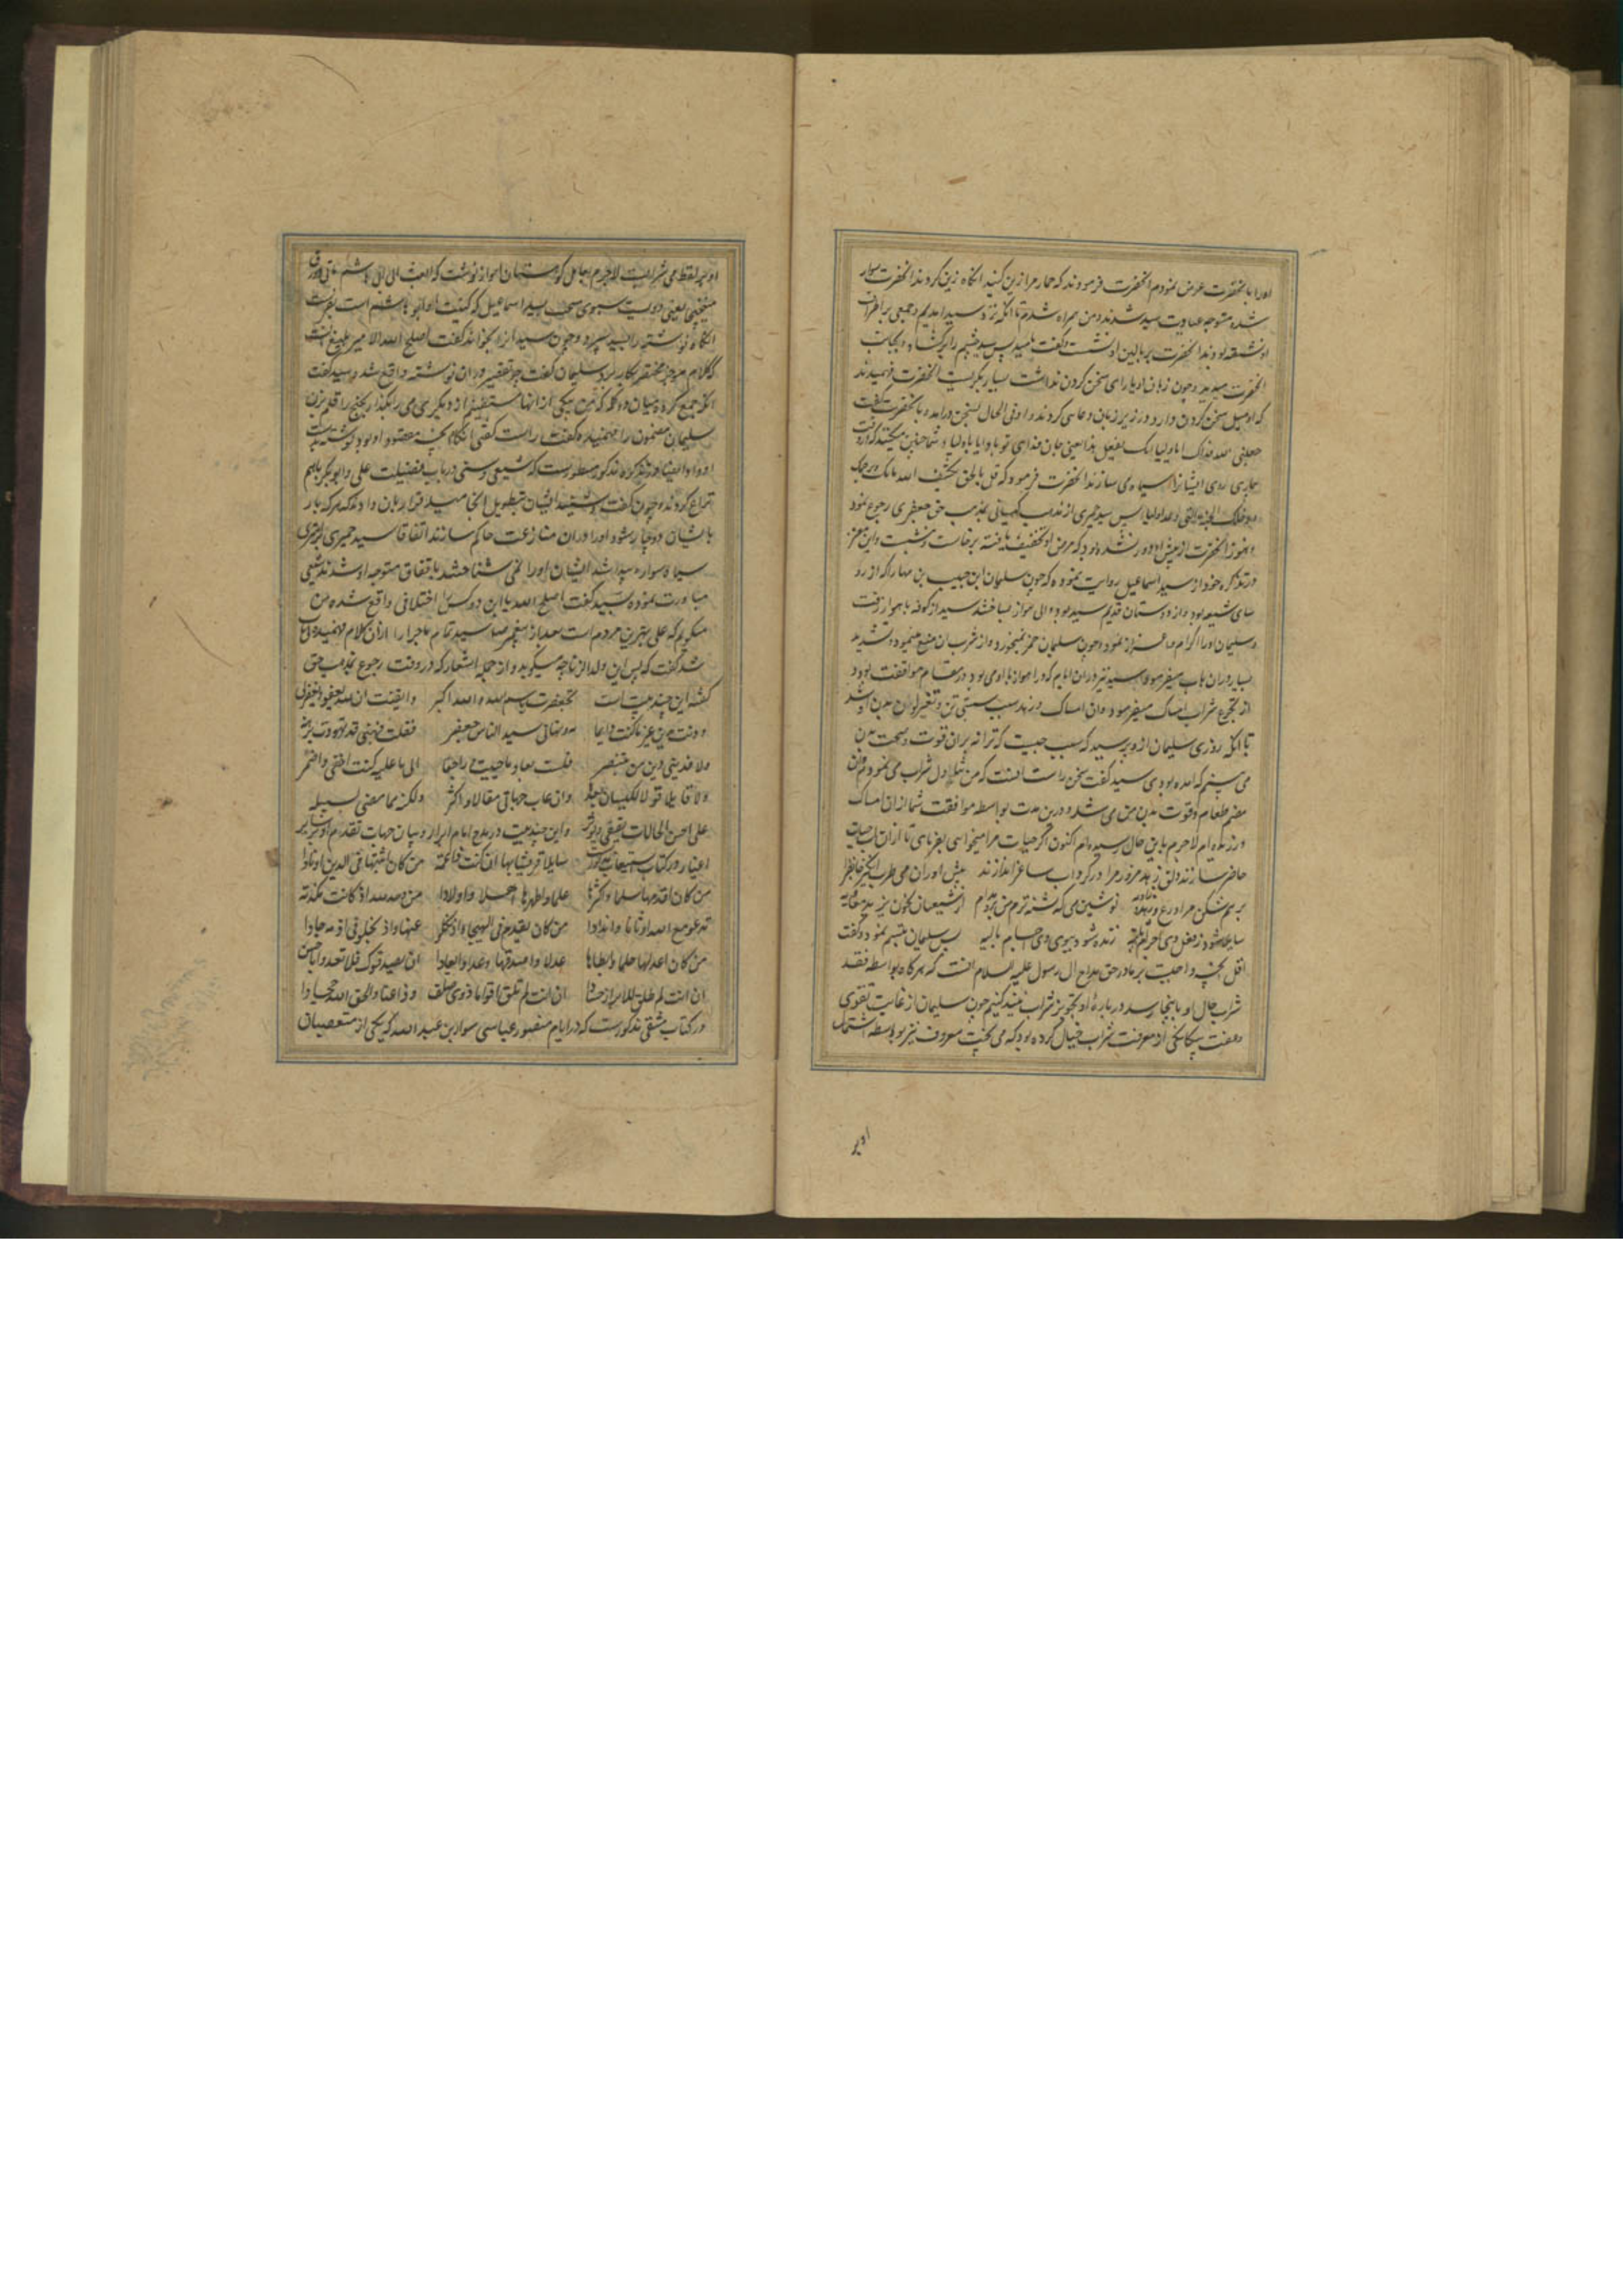 اورا بانحضرت عرض نمودم انحضرت فرمودند که حمار مرا زین کنید انکاه زین کردند انحضرت سوار
شده متوجه عیادت سید شدند و من همراه شدم تا انکه نزد سید امدیم و جمعی بر اطراف
او نشسته بودند انحضرت بر بالین او نشست و کفت یا سید پس سید چشم را برکشاد و بجانب
انحضرت میدید و چون زبان او یارای سخن کردن نداشت بسیار بکریست انحضرت فهمیدند
که او میل سخن کردن دارد و در زیر زبان دعایی کردند و او فی الحال بسخن درامده بانحضرت کفت
جعلنی الله فداک اباولیایک یفعل هذا یعنی جان فدای تو باد ایا باولیا شما چنین میکنند که در وقت
بیماری روی ایشانرا سیاه می سازند انحضرت فرمود که قل بالحق یکشف الله ما بک و یرحمک
و یدخلک الجنة التی وعد اولیاءه پس سید حمیری از مذهب کیسانی بمذهب حق جعفری رجوع نمود
و هنوز انحضرت از پیش او دور نشده بود که مرض او تخفیف یافته برخاست و نشست و ابن معتز
در تذکره خود از سید اسماعیل روایت نموده که چون سلیمان ابن حبیب بن مهارا که از رو
سای شیعه بود و از دوستان قدیم سید بود والی اهواز ساختند سید از کوفه باهواز رفت
و سلیمان اورا اکرام و اعزاز نمود و چون سلیمان خمر نمیخورد و از شرب ان منع مینمود و تشدید
بسیار در ان باب میفرمود و سید نیز در ان ایام که در اهواز با او می بود در مقام موافقت بوده
از تجرع شراب امساک میفرمود و ان امساک در سید سبب سستی تن و تغیر لون بدن او شد
تا انکه روزی سلیمان از و پرسید که سبب چیست که ترا نه بران قوت و صحت بدن
می بینم که امده بودی سید کفت سخن راست انست که من قبل ازین شراب می خوردم و ان
هضم طعام و قوت بدن من می شد و درین مدت بواسطه موافقت شما از ان امساک
ورزیده ام لاجرم باین حال رسیده ام اکنون اکر حیات مرا میخواهی بفرمای تا ازان اب حیات
حاضر سازند دلق زهد مزورم را در کرداب ساغر اندازند پیش اوران می طرب انکیز خاطر
بر هم شکن مرا ورع و زهد نوشین می که شنه ترم من ز شیعیان کنون بریز پیمانه
سایلا شود ز فعل وی اجزای زنده شود ببوی وی اجسام بالیه پس سلیمان تبسم نمود و کفت
اقل انچه واجبست بر ما در حق مداح ال رسول علیه السلام انست که هرکاه بواسطه فقد
شراب حال او باینجا رسد در باره او تجویز شراب نبیند کنیم چون سلیمان از غایت تقوی
و عفت و بیکانکی از معرفت شراب خیال کرده بود که می پخت معروف نیز بواسطه اشتمال
او بر
او بر لفظ می شرابست لاجرم بعامل کوهستان اهواز نوشت که ابعث الی ابی هاشم مائتی دورق
میبختج یعنی دویست سبوی می پخت سید اسماعیل که کنیت او ابو هاشم است بفرست
انکاه نوشته را بسید سپرد و چون سید انرا بخواند کفت اصلح الله الامیر بلیغ انست
که کلام موجز مختصر بکار برد سلیمان کفت چه تقصیر در ان نوشته واقع شد سید کفت
انکه جمع کرده میان دو کلمه که بهر یکی از انها مستغنی از دیکری می را بکذار بختج را قلم بزن
سلیمان مضمون را فهمید و کفت راست کفتی انکاه انچه مقصود او بود نوشته بدست
او داد ایضا در تذکره مذکور مسطورست که شیعی و سنی در باب فضیلت علی و ابو بکر باهم
نزاع کردند و چون کفت و شنید ایشان بتطویل انجامید قرار بدان دادند که هر که بار
بایشان دوچار شود اورا در ان منازعت حاکم سازند اتفاقا سید حمیری بر استری
سیاه سواره پیدا شد ایشان اورا نمی شناختند باتفاق متوجه او شدند شیعی
مبادرت نموده بسید کفت اصلح الله با این دو کس اختلافی واقع شده من
میکویم که علی بهترین مردم است بعد از پیغمبر صلعم سید تمام ماجرا را از ان کلام فهمیده
شد کفت که پس این ولد الزنا چه میکوید و از جمله اشعار که در وقت رجوع بمذهب حق
کفته این چند بیت است تجعفرت بسم الله و الله اکبر و ایقنت ان الله یعفو و یغفر
و دنت بدین غیر ما کنت دایما به و نهانی سید الناس جعفر فقلت فهبنی قد تهودت برهة
ولا فدینی دین من یتنصر فلست بعاد ما حییت و راجعا الی ما علیه کنت اخفی و اضمر
ولا قایلا قولا لکیسان بعدها وان عاب جهال مقالا و اکثر ولکنه مما مضی لسبیله
علی احسن الحالات یقفی و یوثر و این چند بیت در مدح امام ابرار و بیان جهات تقدم او بر سایر
اغیار در کتاب استیعاب مذکورست سایل قریشا بها ان کنت ذا عمه من کان اثبتها فی الدین اوتادا
من کان اقدمها سلما و اکثرها علما و اطهرها اهلا و اولادا من وحد الله اذ کانت مکذبة
تدعو مع الله اوثانا و اندادا من کان یقدم فی الهیجا و اذ نکلوا عنها و اذ بخلوا فی ازمة جادا
من کان اعدلها حکما و ابسطها عدلا و اصدقها وعدا و ایعادا ان یصدقوک فلا تعدوا ابا حسن
ان انت لم تلق للابرار حسادا ان انت لم تلق اقواما ذوی صلف و ذا عناد لحق الله جحادا
در کتاب مشقی مذکورست که در ایام منصور عباسی سوار بن عبد الله که یکی از متعصبان